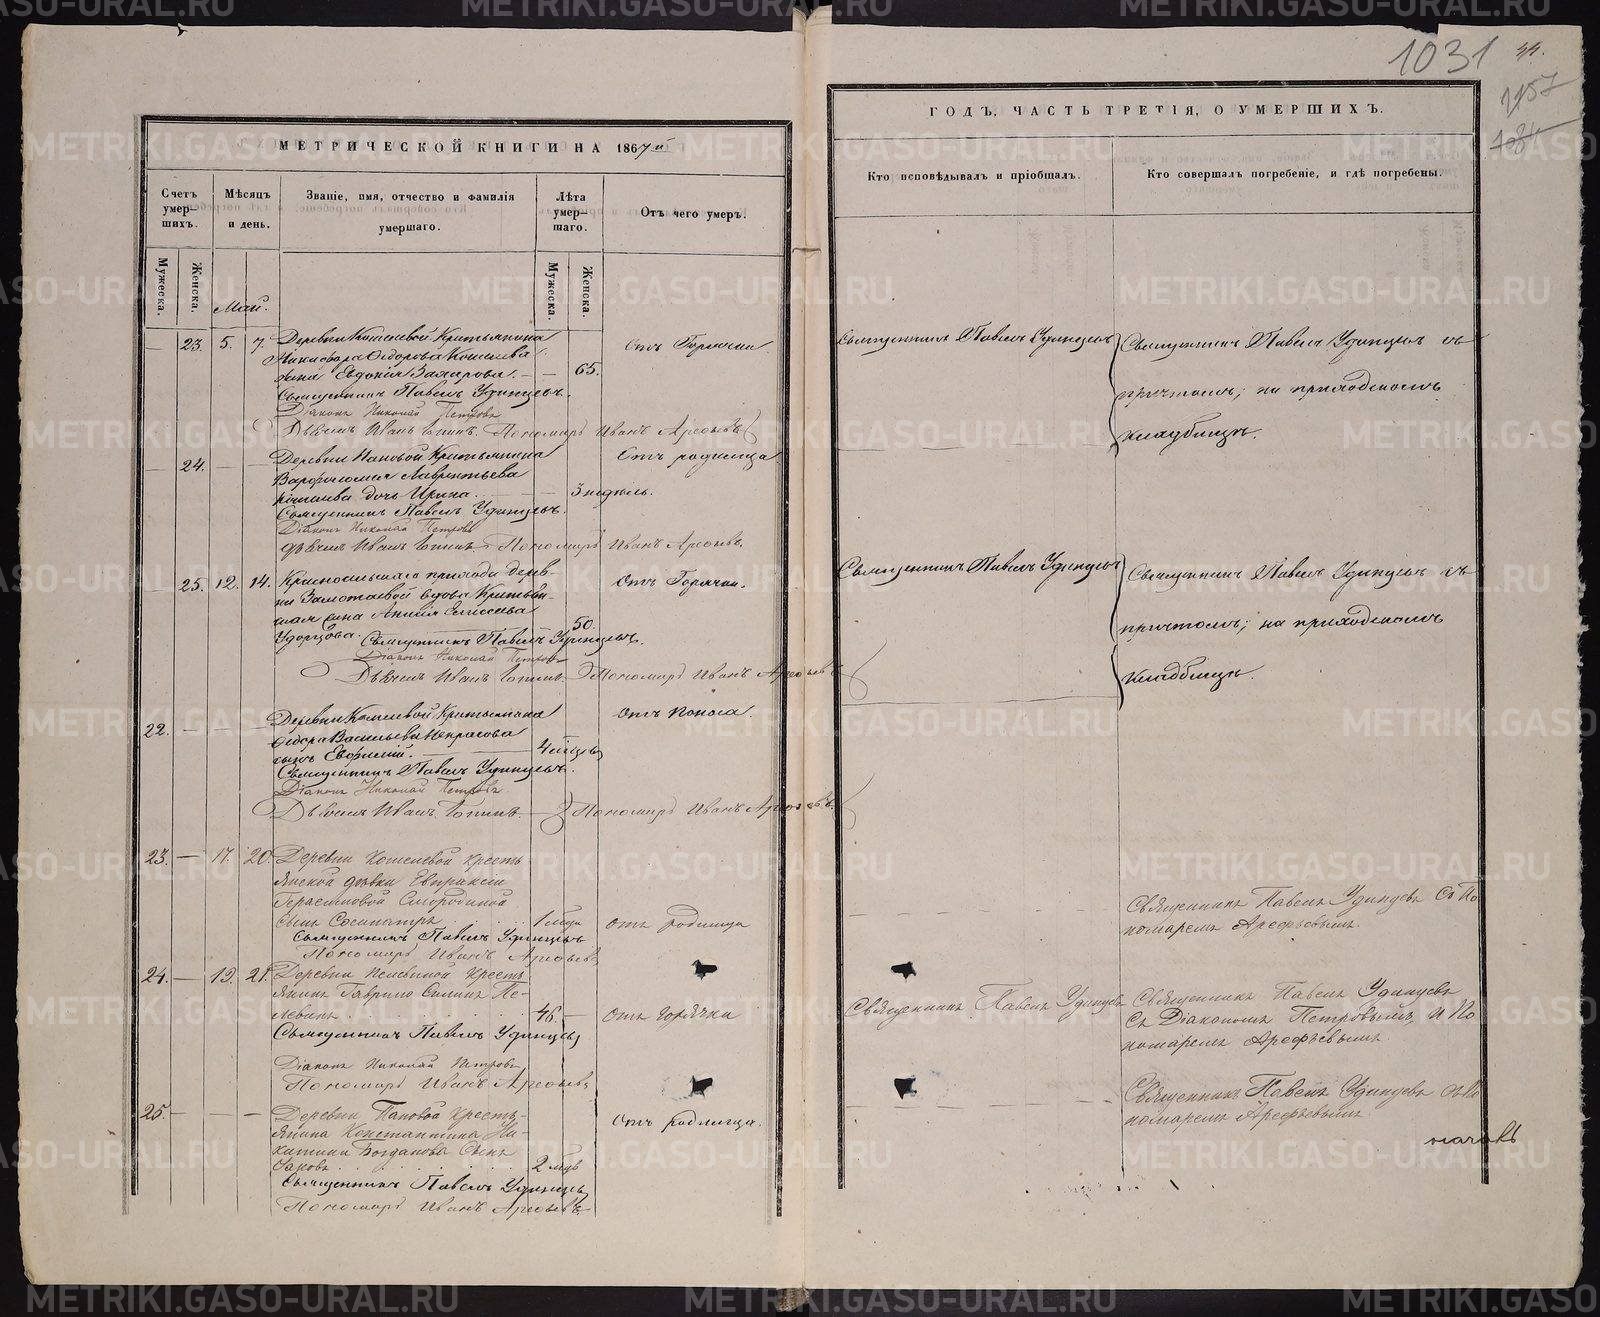 1031
44.
1157
1084
МЕТРИЧЕСКОЙ КНИГИ НА 1867й
Счетъ умер-шихъ.
Мѣсяцъ и день.
Званіе, имя, отчество и фамилія умершаго.
Лѣта умер-шаго.
Отъ чего умеръ.
Мужеска.
Женска.
Мужеска.
Женска.
Май.
23. 5. 7. Деревни Кошелевой Крестьянина
Никифора Ѳедорова Кошелева
жена Евдокія Захарова. 65. Отъ Горячки
Священникъ Павелъ Удинцевъ.
Діаконъ Николай Петровъ
Дьячекъ Иванъ Топинъ. Пономарь Иванъ Арефьевъ
24. Деревни Пановой Крестьянина
Варфоломея Лаврентьева
дочь Ирина. 3 недѣль. Отъ родимца
Священникъ Павелъ Удинцевъ.
Діаконъ Николай Петровъ
Дьячекъ Иванъ Топинъ Пономарь Иванъ Арефьевъ.
25. 12. 14. прихода Дерев-
ни вдова Крестьян-
Елисеева 50. Отъ Горячки.
Священникъ Павелъ Удинцевъ.
Діаконъ Николай Петровъ
Дьячекъ Иванъ Топинъ. Пономарь Иванъ Арефьевъ
22. Деревни Кошелевой Крестьянина
Ѳедора Васильева Некрасова
сынъ Евфимій. 4 мѣсяцъ Отъ поноса.
Священникъ Павелъ Удинцевъ.
Діаконъ Николай Петровъ
Дьячекъ Иванъ Топинъ. Пономарь Иванъ Арефьевъ.
23. 17. 20. Деревни Кошелевой крестья
янской дѣвки Евпраксіи
Герасимовой Смородиной
сынъ Сосипатръ 1 мѣця отъ родимца
Священникъ Павелъ Удинцевъ
Пономарь Иванъ Арефьевъ
24. 19. 21. Деревни Пелевиной крестья
янинъ Гаврило Силинъ Пе-
левинъ 46. отъ горячки
Священникъ Павелъ Удинцевъ
Діаконъ Николай Петровъ
Пономарь Иванъ Арефьевъ
25. Деревни Пановой кресть-
янина Константина Ни-
китина Богданова сынъ
Іаковъ 2 мѣв Отъ Родимца.
Священникъ Павелъ Удинцевъ
Пономарь Иванъ Арефьевъ.
ГОДЪ, ЧАСТЬ ТРЕТІЯ, О УМЕРШИХЪ.
Кто исповѣдывалъ и пріобщалъ.
Кто совершалъ погребеніе, и гдѣ погребены.
Священникъ Павелъ Удинцевъ
Священникъ Павелъ Удинцевъ съ
причтомъ; на приходскомъ
кладбищѣ.
Священникъ Павелъ Удинцевъ
Священникъ Павелъ Удинцевъ съ
причтомъ; на приходскомъ
кладбищѣ.
Священникъ Павелъ Удинцевъ Съ По
номаремъ Арефьевымъ.
Священникъ Павелъ Удинцевъ
Священникъ Павелъ Удинцевъ
Съ Діакономъ Петровымъ, и По
номаремъ Арефьевымъ.
Священникъ Павелъ Удинцевъ съ По
номаремъ Арефьевымъ
METRIKI.GASO-URAL.RU